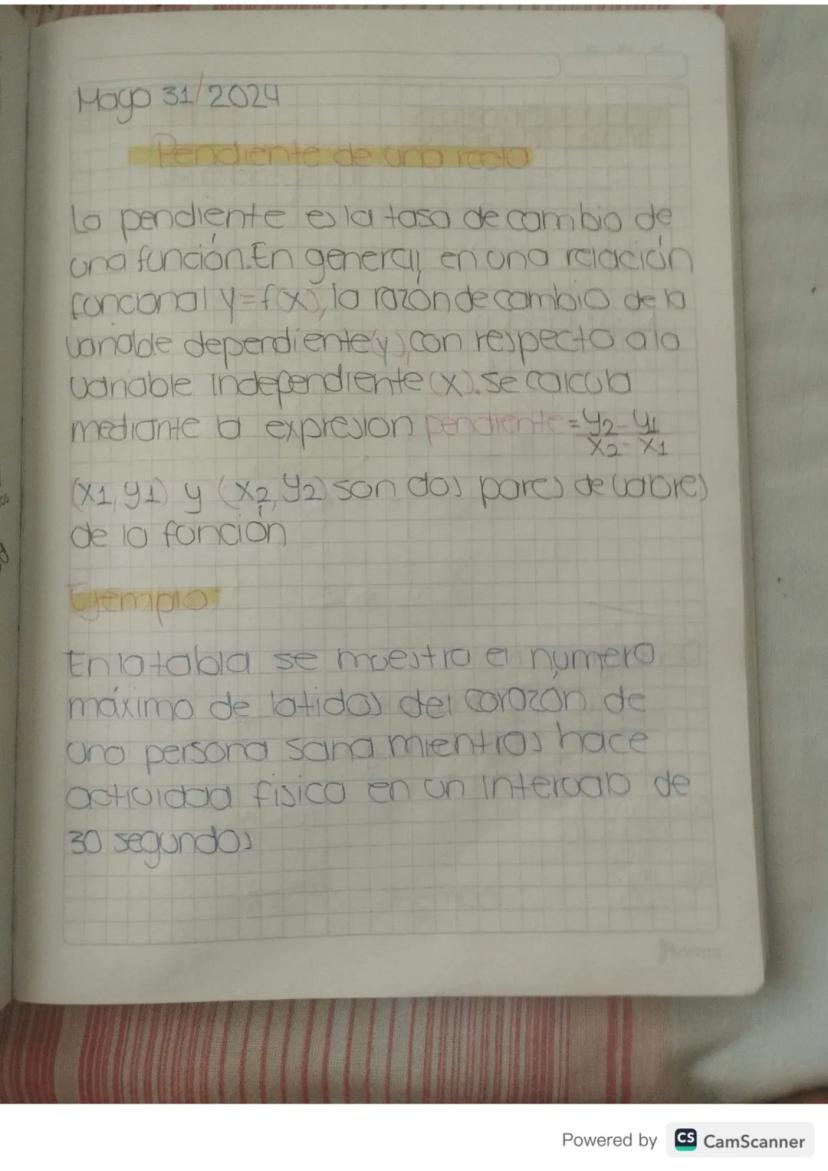 Mayo 31/2024
Pendiente de una recta
La pendiente es la tasa de cambio de
una función. En general, en una relación
funcional y=f(x), la razón de cambio de la
variable dependiente(y), con respecto a la
variable independiente (x). se calcula
mediante la expresion pendiente = y2 - y1 / x2 - x1
(x1, y1) y (x2, y2) son dos pares de valores
de la función
Ejemplo
En la tabla se muestra el numero
máximo de latidos del corazón de
una persona sana mientras hace
actividad fisica en un intervalo de
30 segundos
Norma
Powered by CS CamScanner